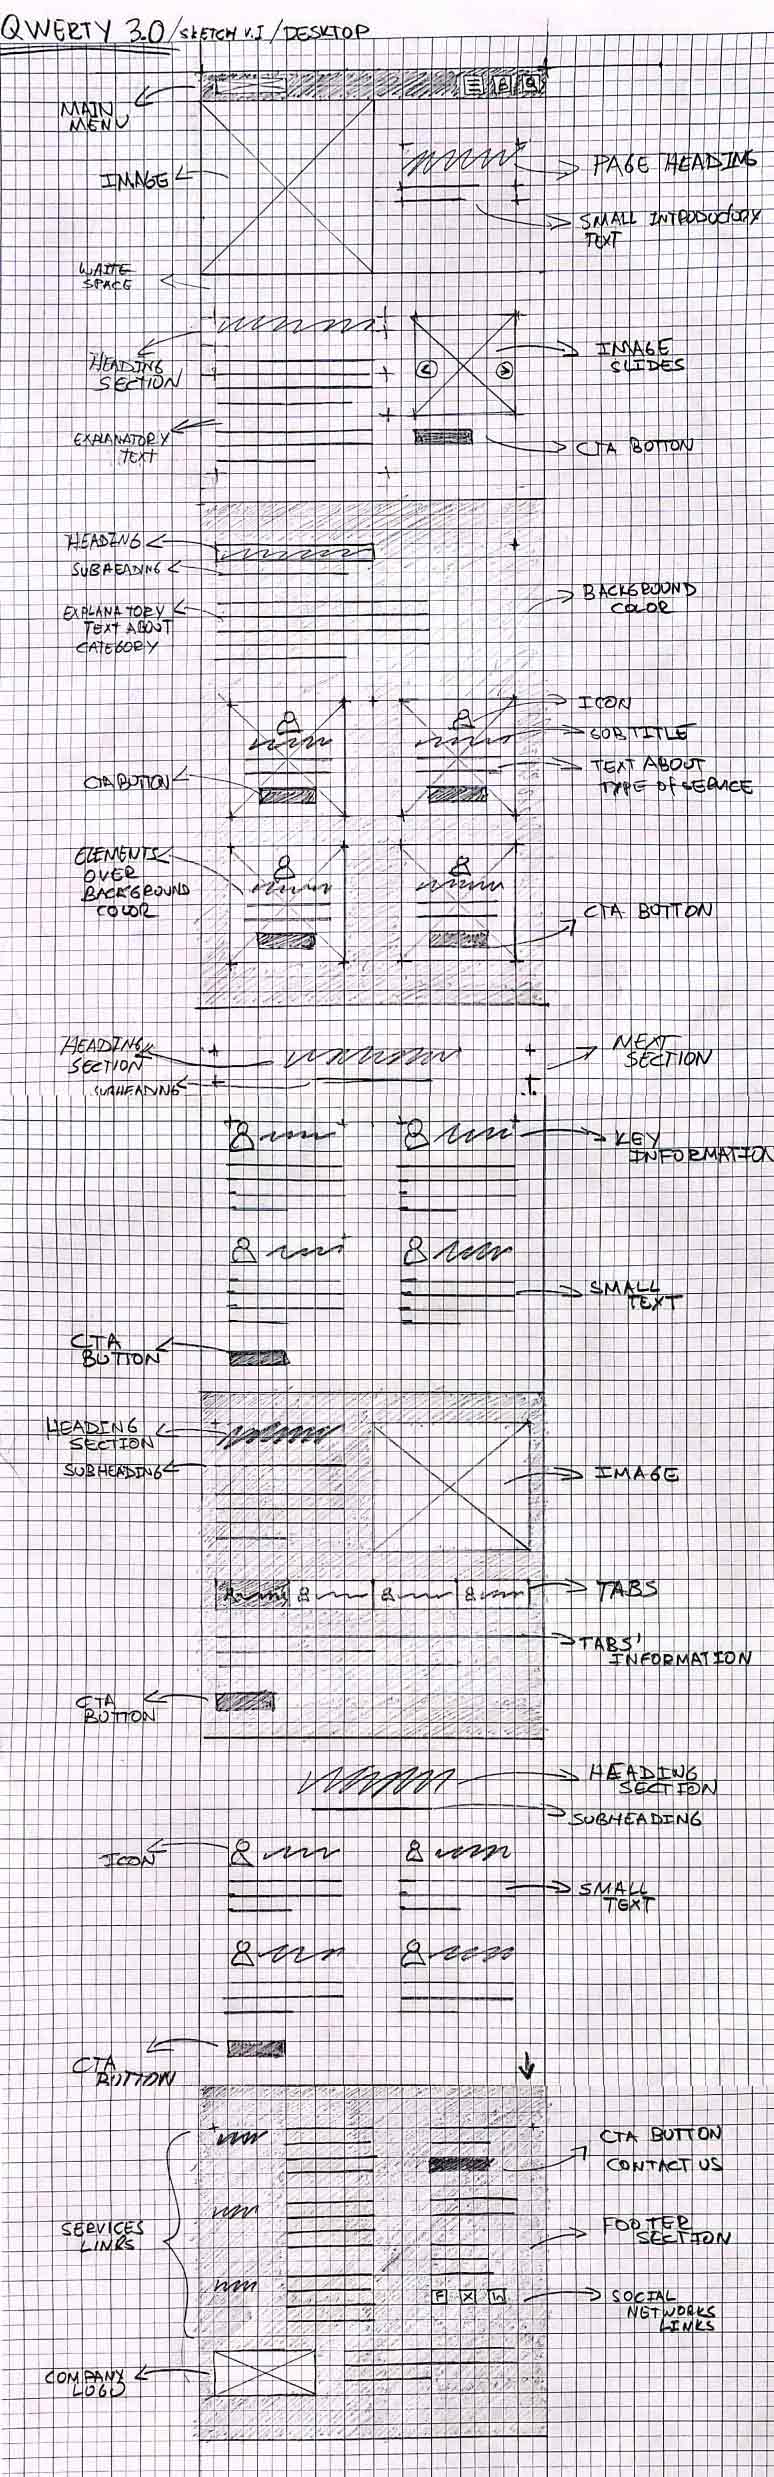 QWERTY 3.0/SKETCH V.I/DESKTOP
MAIN
MENU
IMAGE
PAGE HEADING
SMALL INTRODUCTORY
TEXT
WHITE
SPACE
HEADING
SECTION
IMAGE
SLIDES
EXPLANATORY
TEXT
CTA BOTTON
HEADING
SUBHEADING
BACKGROUND
COLOR
EXPLANATORY
TEXT ABOUT
CATEGORY
ICON
SUBTITLE
CTA BUTTON
TEXT ABOUT
TYPE OF SERVICE
ELEMENTS
OVER
BACKGROUND
COLOR
CTA BOTTON
HEADING
SECTION
SUBHEADING
NEXT
SECTION
KEY
INFORMATION
SMALL
TEXT
CTA
BUTTON
HEADING
SECTION
SUBHEADING
IMAGE
TABS
TABS'
INFORMATION
CTA
BUTTON
HEADING
SECTION
SUBHEADING
ICON
SMALL
TEXT
CTA
BUTTON
CTA BUTTON
CONTACT US
SERVICES
LINKS
FOOTER
SECTION
F X In
SOCIAL
NETWORKS
LINKS
COMPANY
LOGO